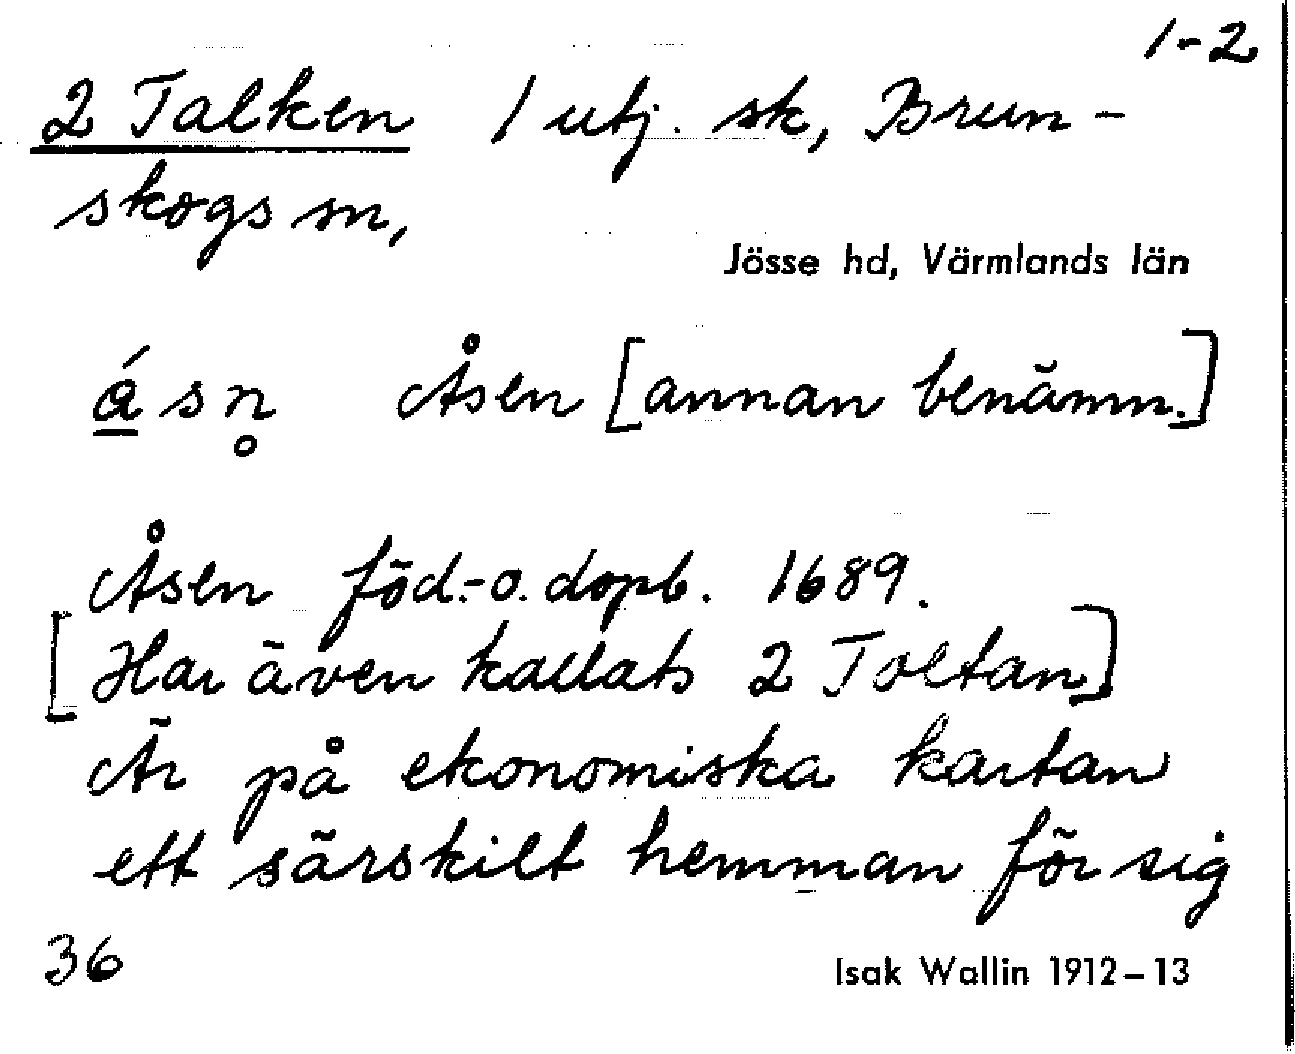 1-2
2 Talken 1 utj. sk, Brun-
skogs sn,
Jösse hd, Värmlands län
ásn̥ Åsen [annan benämn.]
Åsen föd.- o. dopb. 1689.
[Har även kallats 2 Toltan]
Är på ekonomiska kartan
ett särskilt hemman för sig
36
Isak Wallin 1912–13